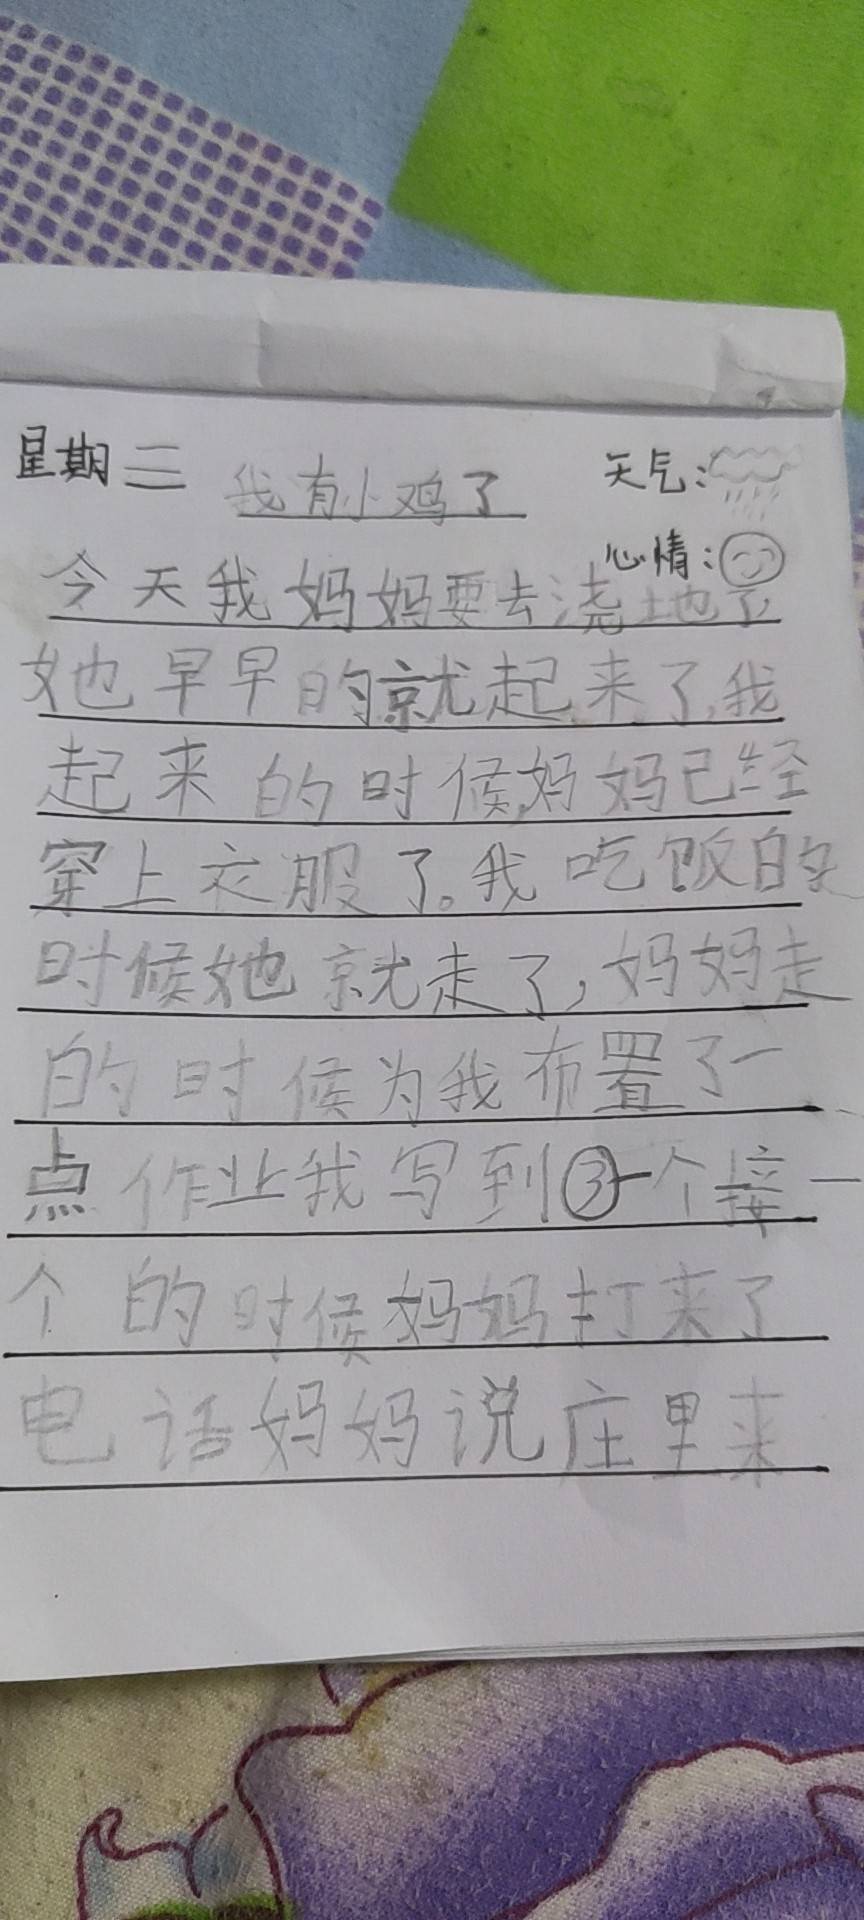 星期三 我有小鸡了 天气:
心情:
今天我妈妈要去浇地了,
她早早的就起来了,我
起来的时候,妈妈已经
穿上衣服了。我吃饭的
时候她就走了,妈妈走
的时候为我布置了一
点作业我写到③一个接一
个的时候妈妈打来了
电话妈妈说庄里来